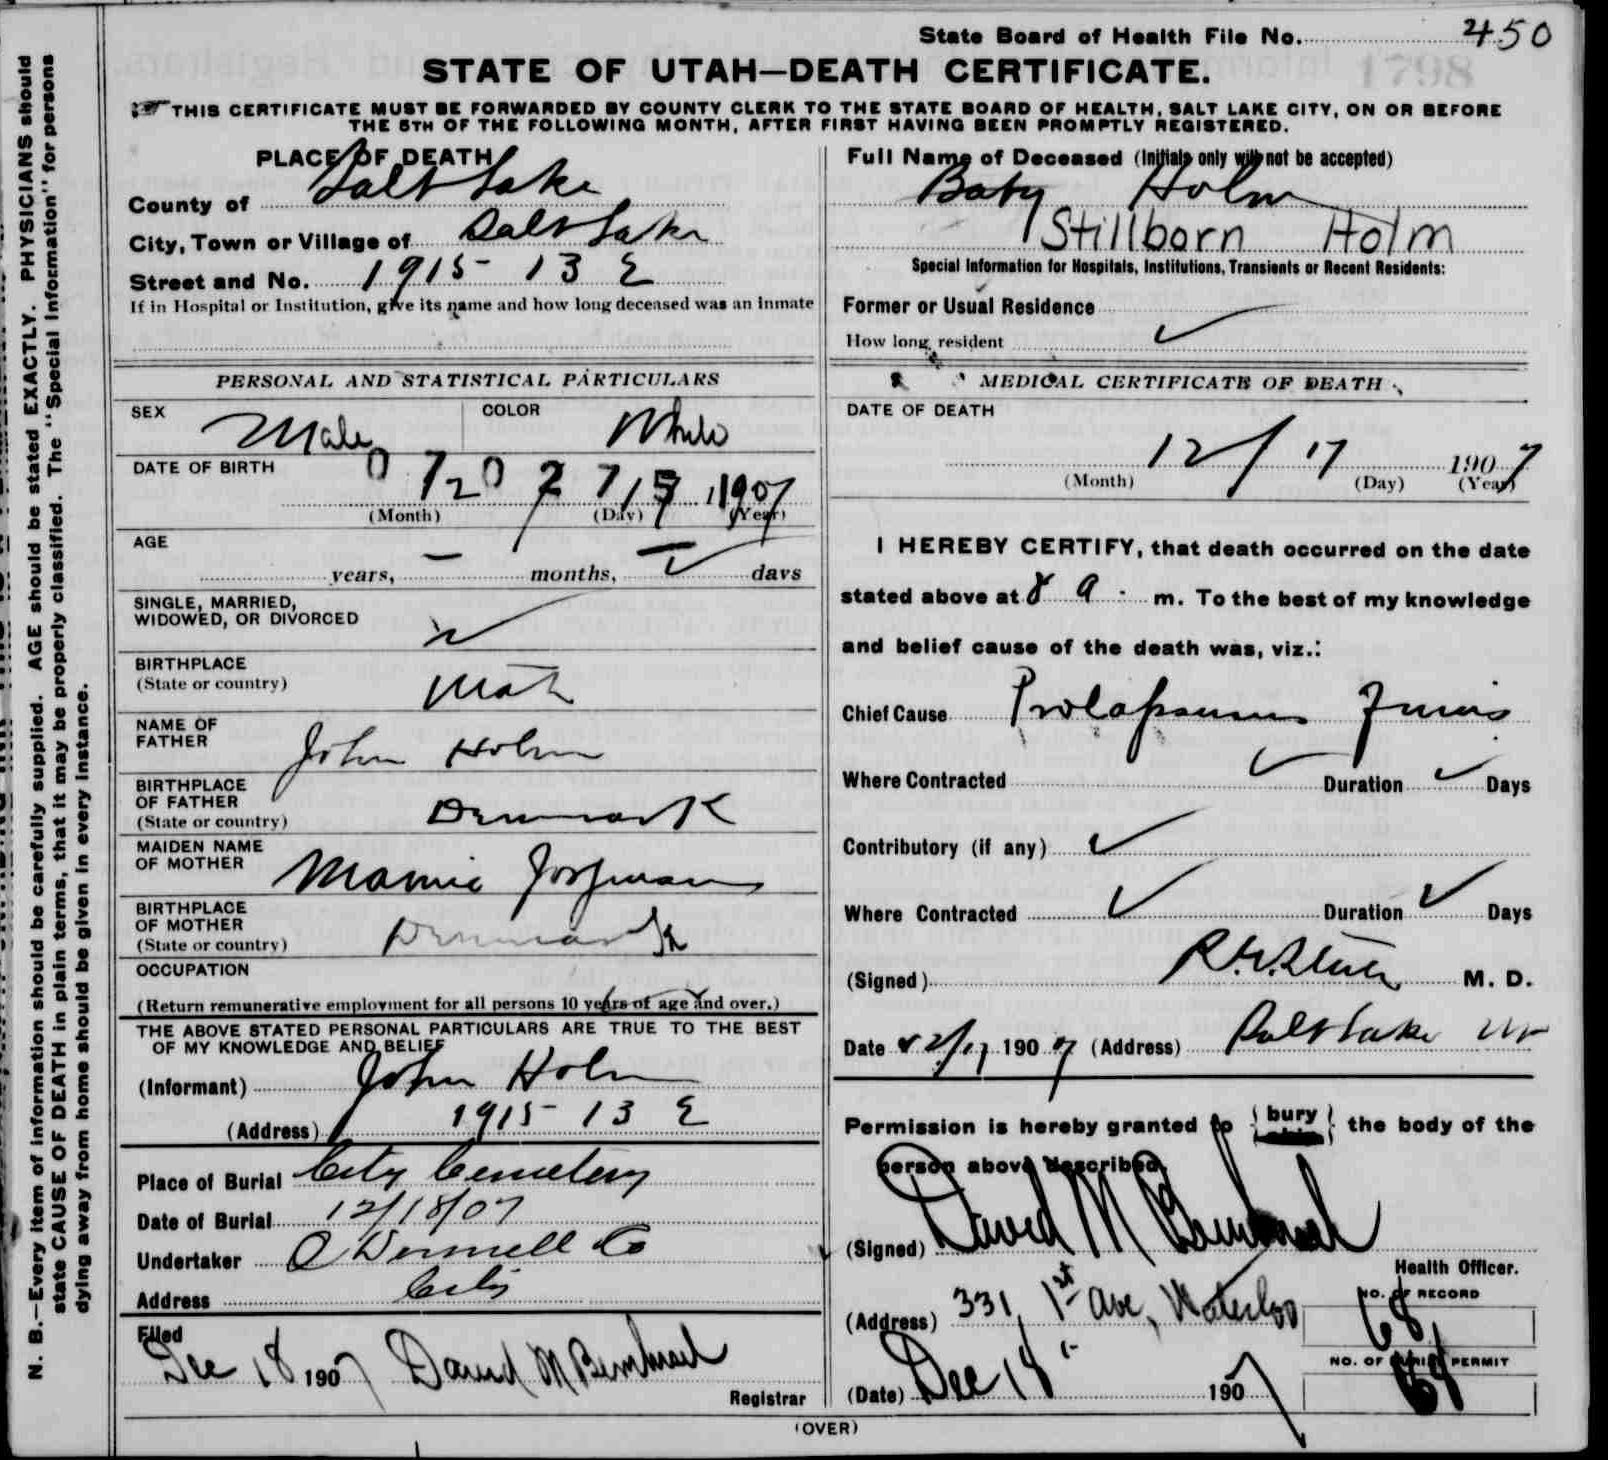 State Board of Health File No. 450
1798
STATE OF UTAH—DEATH CERTIFICATE.
THIS CERTIFICATE MUST BE FORWARDED BY COUNTY CLERK TO THE STATE BOARD OF HEALTH, SALT LAKE CITY, ON OR BEFORE
THE 5TH OF THE FOLLOWING MONTH, AFTER FIRST HAVING BEEN PROMPTLY REGISTERED.
N. B.—Every item of information should be carefully supplied. AGE should be stated EXACTLY. PHYSICIANS should
state CAUSE OF DEATH in plain terms, that it may be properly classified. The "Special Information" for persons
dying away from home should be given in every instance.
PLACE OF DEATH
County of Salt Lake
City, Town or Village of Salt Lake
Street and No. 1915 - 13 E
If in Hospital or Institution, give its name and how long deceased was an inmate
PERSONAL AND STATISTICAL PARTICULARS
SEX Male COLOR White
DATE OF BIRTH
(Month) (Day) 1907 (Year)
AGE
years, — months, — days
SINGLE, MARRIED,
WIDOWED, OR DIVORCED
BIRTHPLACE
(State or country) Utah
NAME OF
FATHER John Holm
BIRTHPLACE
OF FATHER
(State or country) Denmark
MAIDEN NAME
OF MOTHER Mamie
BIRTHPLACE
OF MOTHER
(State or country) Denmark
OCCUPATION
(Return remunerative employment for all persons 10 years of age and over.)
THE ABOVE STATED PERSONAL PARTICULARS ARE TRUE TO THE BEST
OF MY KNOWLEDGE AND BELIEF
(Informant) John Holm
(Address) 1915 - 13 E
Place of Burial City Cemetery
Date of Burial 12/18/07
Undertaker O Donnell Co
Address City
Filed
Dec 18 1907 David M
Registrar
Full Name of Deceased (Initials only will not be accepted)
Baby Holm
Stillborn Holm
Special Information for Hospitals, Institutions, Transients or Recent Residents:
Former or Usual Residence
How long resident
MEDICAL CERTIFICATE OF DEATH
DATE OF DEATH
12/17 1907
(Month) (Day) (Year)
I HEREBY CERTIFY, that death occurred on the date
stated above at 8 a. m. To the best of my knowledge
and belief cause of the death was, viz.:
Chief Cause
Where Contracted Duration Days
Contributory (if any)
Where Contracted Duration Days
(Signed) M. D.
Date 12/17 1907 (Address) Salt Lake Ut
Permission is hereby granted to {bury} the body of the
person above described.
(Signed) David M
Health Officer.
(Address) 331, 1st Ave, Waterloo
(Date) Dec 18 1907
NO. OF RECORD
68
NO. OF BURIAL PERMIT
(OVER)